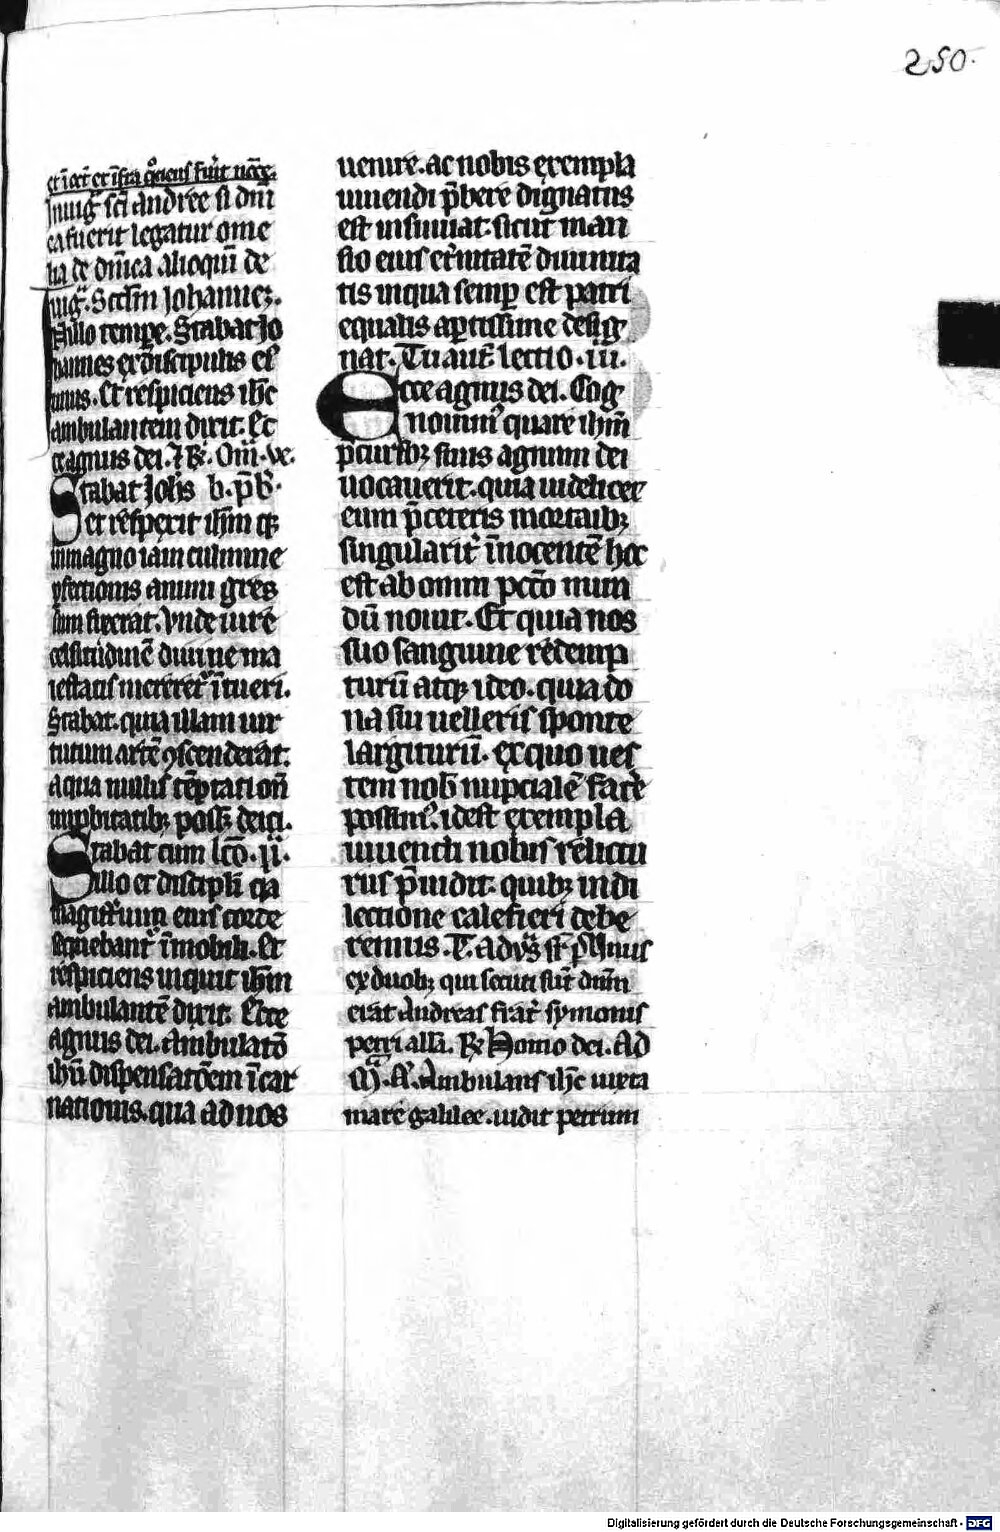 250.
In uigͥ. sci andree si dni
ca fuerit legatur ome
lia de dn̄ica alioquin̄ de
uigͥ. Scdm̄ Johannē.
In illo tempe. Stabat Jo
hannes et ex discipulis eiꝰ
duo. Et respiciens ih̄c
ambulantem dixit. Ec
ce agnus dei.
Stabat Joh̄s b. p̄b.
et respexit ih̄m qꝫ
in magno iam culmine
ꝑfectionis animi gres
sum fixerat. Vnde iure
celsitudinē diuine ma
iestatis mereretᷣ ītueri.
Stabat. quia illam uir
tutum artē ꝯscenderat.
a qua nullis tēptationū
inꝓbitatibꝫ possꝫ deici.
Stabat cum lc̄o. ij.
illo et discipli qia
magistrum eius corde
sequebantᷣ īmobili. Et
respiciens inquit ih̄m
ambulantē dixit. Ecce
agnus dei. Ambulatō
ih̄u dispensatōem īcar
nationis. qua ad nos
uenire. ac nobis exempla
uiuendi p̄bere dignatus
est insinuat. sicut man
sio eius et̾nitatē diuinita
tis in qua semꝑ est patri
equalis aptissime desig
nat. Tu aut̄ lectio. iii.
Ecce agnus dei. Cog
nouimꝰ quare ih̄m
p̄cursor suus agnum dei
uocauerit. quia uidelicet
eum p̄ ceteris mortalibꝫ
singularit̾ īnocentē hoc
est ab omni pcc̄o mun
dū nouit. Et quia nos
suo sanguine redemp
turū atqꝫ ideo. quia do
na sui uelleris sponte
largiturū. ex quo ues
tem nob̄ nupcialē facē
possimꝰ. idest exempla
uiuendi nobis relictu
rus p̄uidit. quibꝫ in di
lectione calefieri debe
remus. T. Ad vs̄ Vnus
ex duobꝫ qui secuti sūt dn̄m
erat Andreas frat̾ symonis
petri all̄a. ℞ Homo dei. Ad
M. Aͣ. Ambulans ih̄c iuxta
mare galilee. uidit petrum
Digitalisierung gefördert durch die Deutsche Forschungsgemeinschaft - DFG